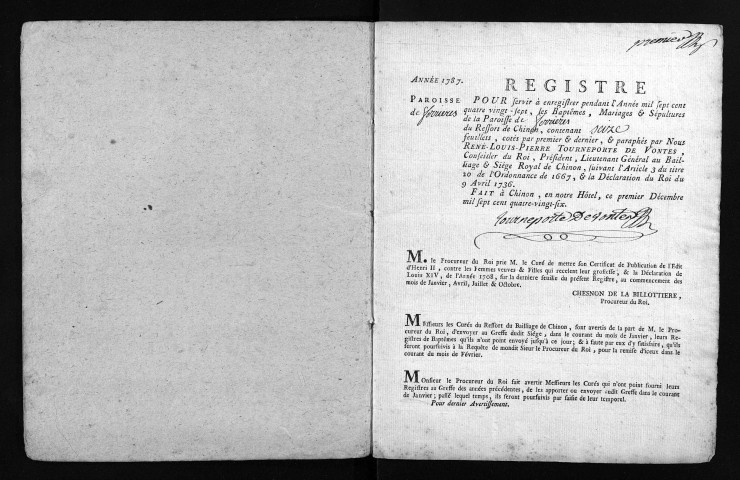 premier
ANNÉE 1787.
REGISTRE
PAROISSE
de ferrieres
POUR servir à enregistrer pendant l'Année mil sept cent
quatre vingt-sept, les Baptêmes, Mariages & Sépultures
de la Paroisse de ferrieres
du Ressort de Chinon, contenant seize
feuillets, cotés par premier & dernier, & paraphés par Nous
RENÉ-LOUIS-PIERRE TOURNEPORTE DE VONTES,
Conseiller du Roi, Président, Lieutenant Général au Bail-
liage & Siège Royal de Chinon, suivant l'Article 3 du titre
20 de l'Ordonnance de 1667, & la Déclaration du Roi du
9 Avril 1736.
FAIT à Chinon, en notre Hôtel, ce premier Décembre
mil sept cent quatre-vingt-six.
tourneporte De vontes
M. le Procureur du Roi prie M. le Curé de mettre son Certificat de Publication de l'Edit
d'Henri II, contre les Femmes veuves & Filles qui recelent leur grossesse, & la Déclaration de
Louis XIV, de l'Année 1708, sur la derniere feuille du présent Registre, au commencement des
mois de Janvier, Avril, Juillet & Octobre.
CHESNON DE LA BILLOTTIERE,
Procureur du Roi.
MEssieurs les Curés du Ressort du Bailliage de Chinon, sont avertis de la part de M. le Pro-
cureur du Roi, d'envoyer au Greffe dudit Siége, dans le courant du mois de Janvier, leurs Re-
gistres de Baptêmes qu'ils n'ont point envoyé jusqu'à ce jour; & à faute par eux d'y satisfaire, qu'ils
seront poursuivis à la Requête de mondit Sieur le Procureur du Roi, pour la remise d'iceux dans le
courant du mois de Février.
MOnsieur le Procureur du Roi fait avertir Messieurs les Curés qui n'ont point fourni leurs
Registres au Greffe des années précédentes, de les apporter ou envoyer audit Greffe dans le courant
de Janvier; passé lequel temps, ils seront poursuivis par saisie de leur temporel.
Pour dernier Avertissement.